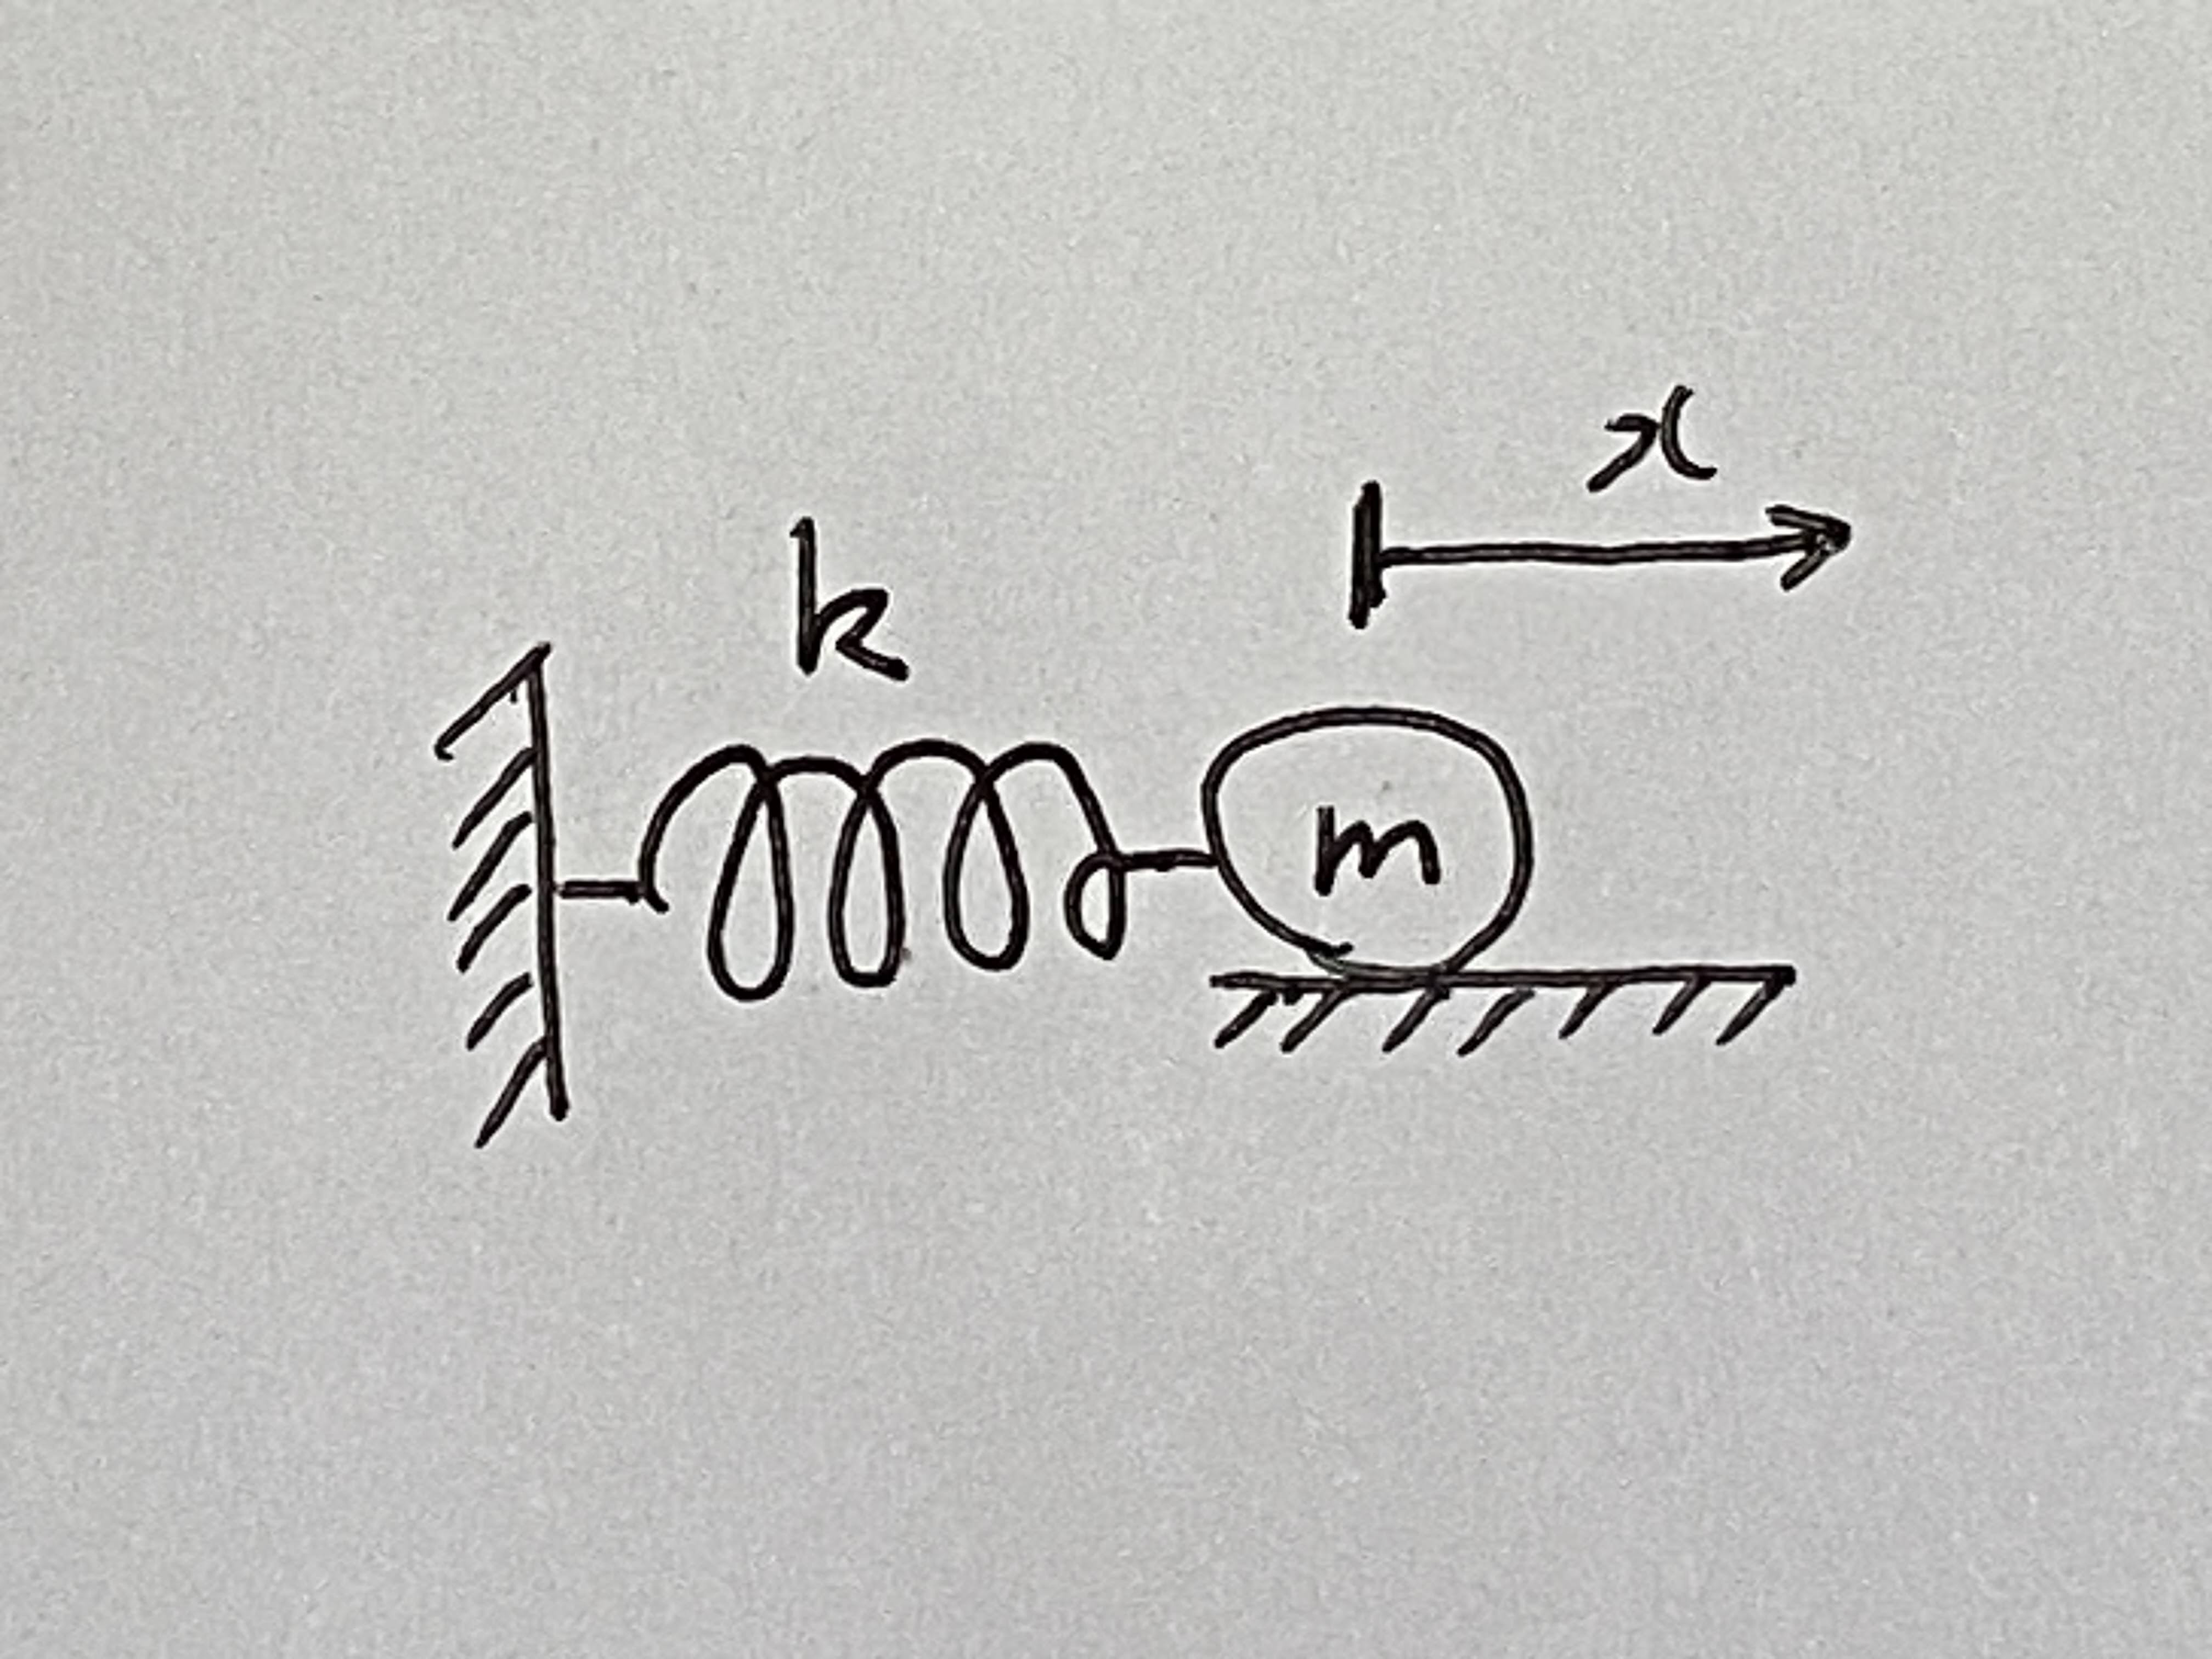 x
k
m